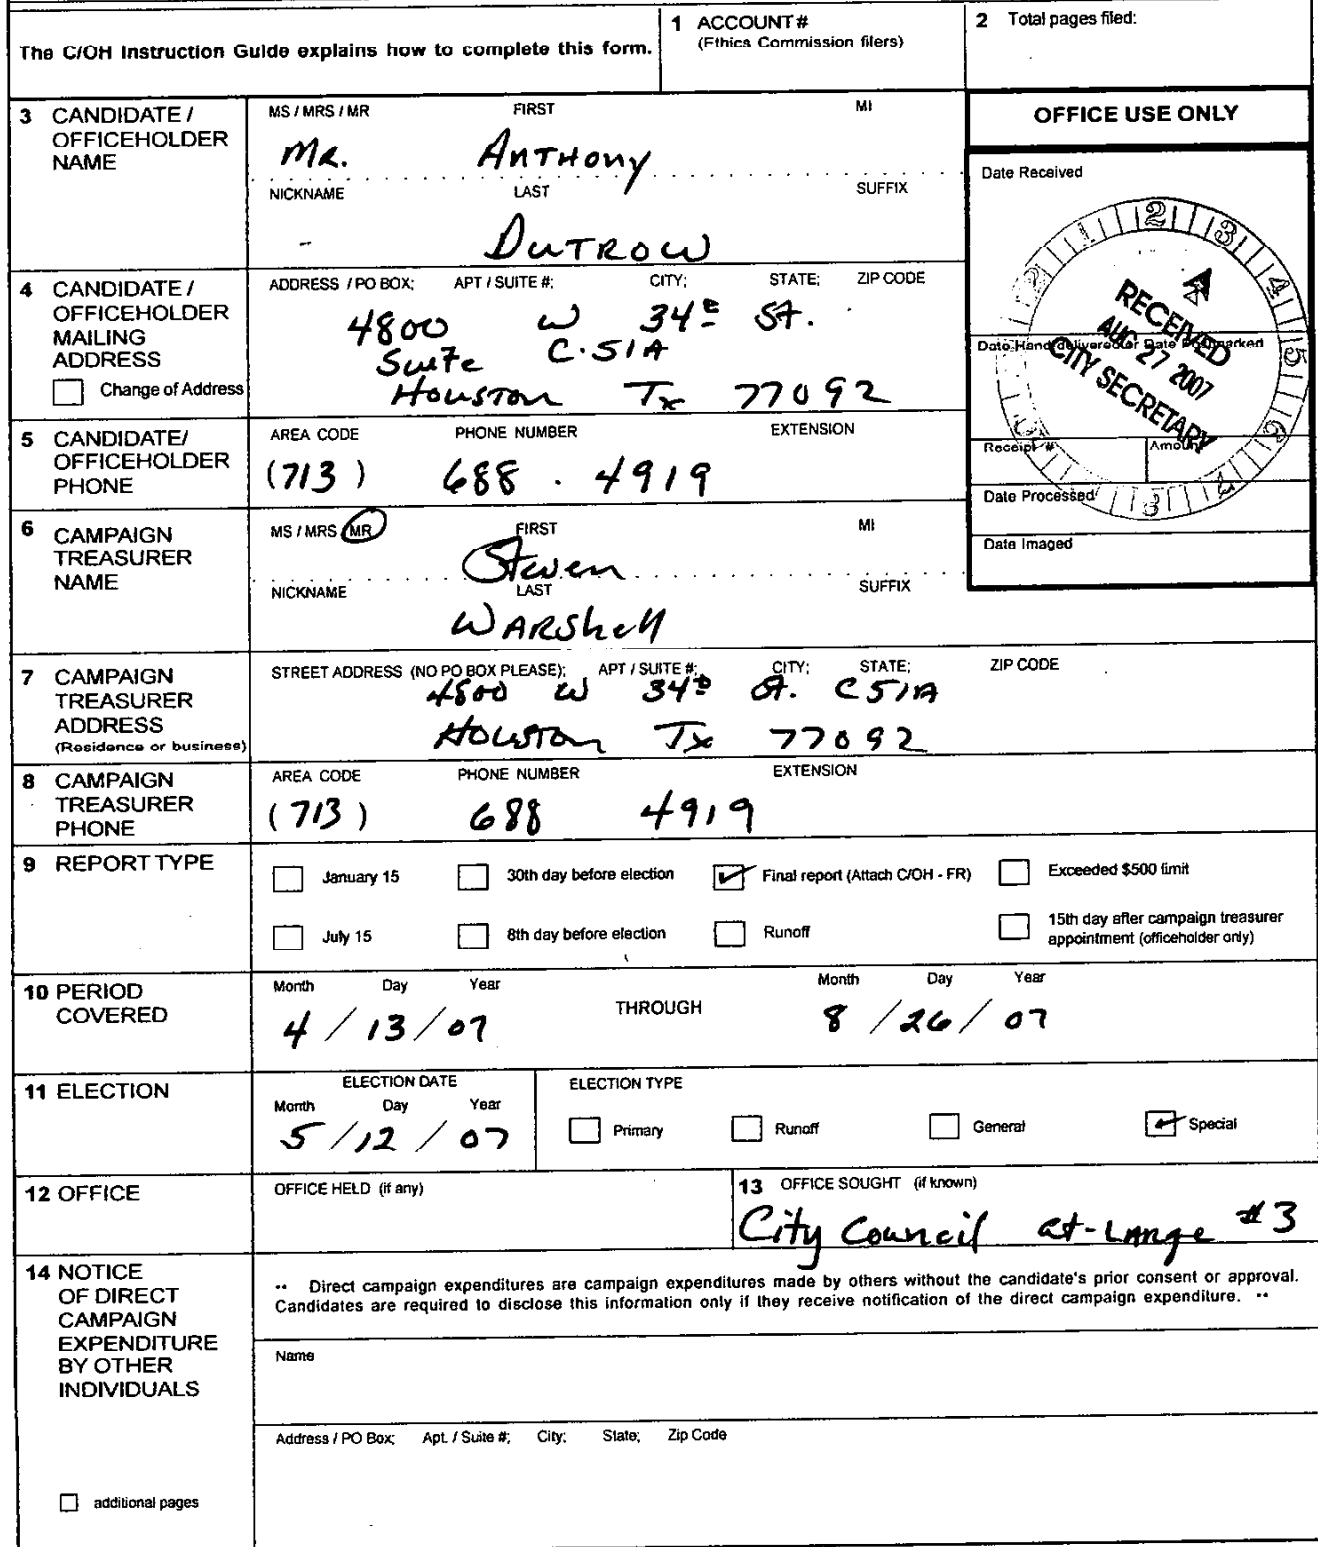 The C/OH Instruction Guide explains how to complete this form.
1 ACCOUNT #
(Ethics Commission filers)
2 Total pages filed:
3 CANDIDATE / OFFICEHOLDER NAME
MS / MRS / MR FIRST MI
Mr. Anthony
NICKNAME LAST SUFFIX
- Dutrow
OFFICE USE ONLY
Date Received
RECEIVED
AUG 27 2007
CITY SECRETARY
Date Hand-delivered or Date Postmarked
Receipt # Amount
Date Processed
Date Imaged
4 CANDIDATE / OFFICEHOLDER MAILING ADDRESS
Change of Address
ADDRESS / PO BOX; APT / SUITE #; CITY; STATE; ZIP CODE
4800 W 34th St.
Suite C.51A
Houston Tx 77092
5 CANDIDATE/ OFFICEHOLDER PHONE
AREA CODE PHONE NUMBER EXTENSION
(713) 688 . 4919
6 CAMPAIGN TREASURER NAME
MS / MRS / MR FIRST MI
Steven
NICKNAME LAST SUFFIX
Warshell
7 CAMPAIGN TREASURER ADDRESS
(Residence or business)
STREET ADDRESS (NO PO BOX PLEASE); APT / SUITE #; CITY; STATE; ZIP CODE
4800 W 34th St. C51A
Houston Tx 77092
8 CAMPAIGN TREASURER PHONE
AREA CODE PHONE NUMBER EXTENSION
(713) 688 4919
9 REPORT TYPE
January 15 30th day before election Final report (Attach C/OH - FR) Exceeded $500 limit
July 15 8th day before election Runoff 15th day after campaign treasurer appointment (officeholder only)
10 PERIOD COVERED
Month Day Year THROUGH Month Day Year
4 / 13 / 07 8 / 26 / 07
11 ELECTION
ELECTION DATE
Month Day Year
5 / 12 / 07
ELECTION TYPE
Primary Runoff General Special
12 OFFICE
OFFICE HELD (if any)
13 OFFICE SOUGHT (if known)
City Council at-Large #3
14 NOTICE OF DIRECT CAMPAIGN EXPENDITURE BY OTHER INDIVIDUALS
•• Direct campaign expenditures are campaign expenditures made by others without the candidate's prior consent or approval.
Candidates are required to disclose this information only if they receive notification of the direct campaign expenditure. ••
Name
Address / PO Box; Apt. / Suite #; City; State; Zip Code
additional pages